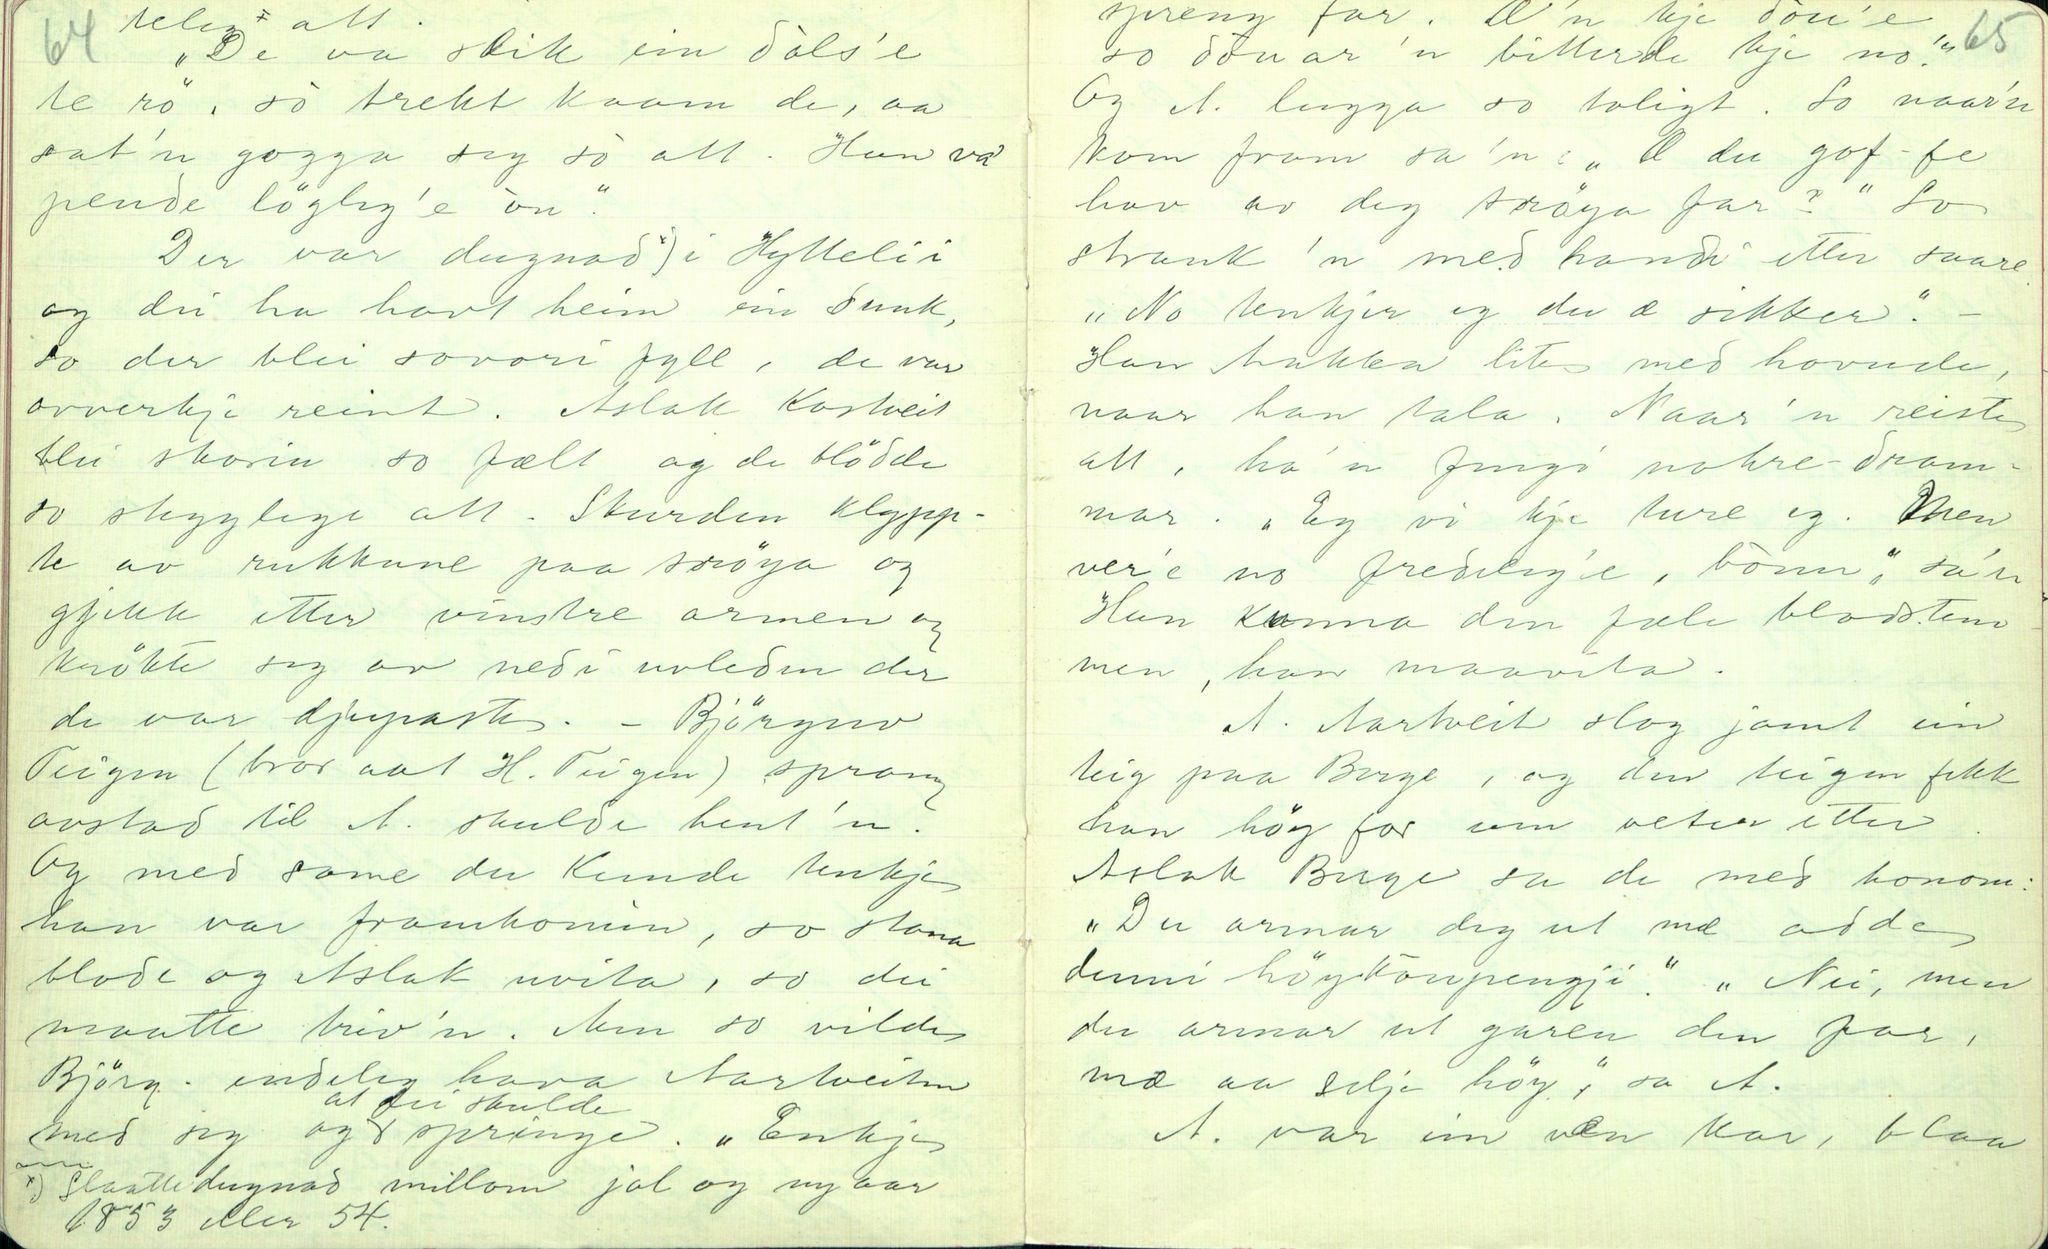 64
teleg x att.
"De va slik ein dòls'e
te rö, so trekt kaam de, aa
sat'n gogga seg sò att. Han va
pende löglig'e òn."
Der var dugnad x) i Hytteli i
og dei ha havt heim ein dunk,
so der blei sovori fyll, de var
ovverkje reint. Aslak Kostveit
blei skorin so fælt og de blödde
so stygglege att. Skurden klypp-
te av rukkune paa tröya og
gjekk etter vinstre armen og
krökte seg av nedi uvleden der
de var djupaste. - Björguv
Teigen (bror aat H. Teigen) sprang
avstad til A. skulde hent'n.
Og med same dei kunde tenkje
han var framkomin, so stana
blode og Aslak uvita, so dei
maatte triv'n. Men so vilde
Björg. endeleg hava Aartveiten
med seg og at dei skulde springe. "Enkje
x) Slaattedugnad millom jol og nyaar
1853 eller 54.
65
spreng far. Æ'n kje dòu'e
so dòuar'n bitterde kje no."
Og A. lugga so toligt. So naar'n
kom fram sa'n: "Æ du gof-fe
hav av deg tröya far?" So
strauk'n med handi etter saare
"No tenkjer eg du æ sikker." -
Han hakka lite med hovude,
naar han tala. Naar'n reiste
att, ha'n fingi nokre dram-
mar. "Eg vi kje ture eg. Men
ver'e no fredeleg'e, bònn," sa'n
Han kunna den fæle blodstem
men, han maavita.
A. Aartveit slog jamt ein
teig paa Berge, og den teigen fekk
han höy for um veteren etter.
Aslak Berge sa de med honom:
"Du armar deg ut mæ adde
denni höykòupengji." "Nei, men
du armar ut garen den far,
mæ aa selje höy," sa A.
A. var ein ven kar, blaa